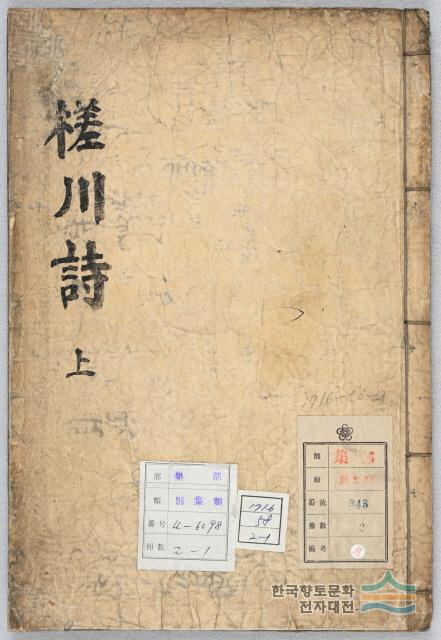 槎川詩
上
部 集部
類 別集類
番号 4-6098
冊数 2-1
1716
58
2-1
部 集部
類
番號 343
冊數 2
備考
한국향토문화
전자대전